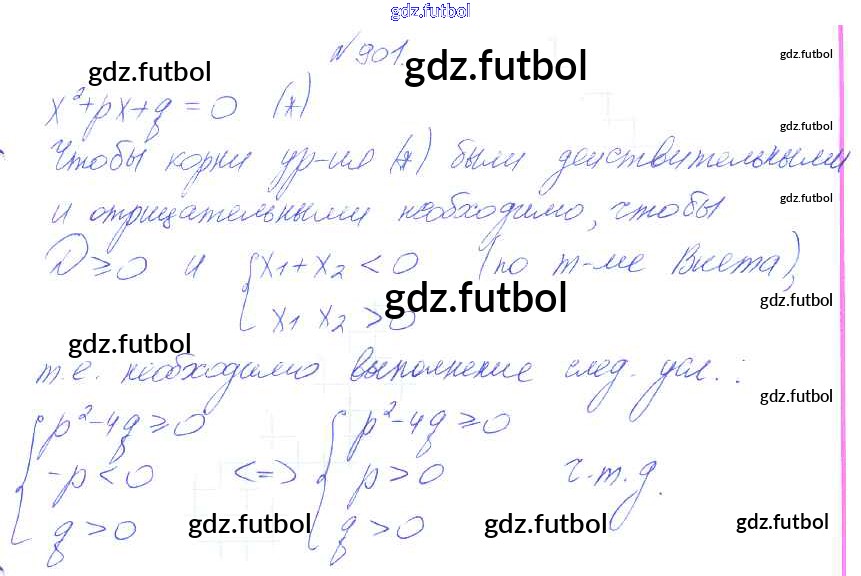 gdz.futbol
№ 901.
gdz.futbol gdz.futbol gdz.futbol
x²+px+q = 0 (*)
gdz.futbol
Чтобы корни ур-ия (*) были действительными
и отрицательными необходимо, чтобы
gdz.futbol
D ≥ 0 и { x₁+x₂ < 0 (по т-ме Виета),
x₁ x₂ > 0
gdz.futbol gdz.futbol
gdz.futbol
т.е. необходимо выполнение след. усл.:
gdz.futbol
{ p²-4q ≥ 0 { p²-4q ≥ 0
-p < 0 <=> p > 0 ч.т.д.
q > 0 q > 0
gdz.futbol gdz.futbol gdz.futbol